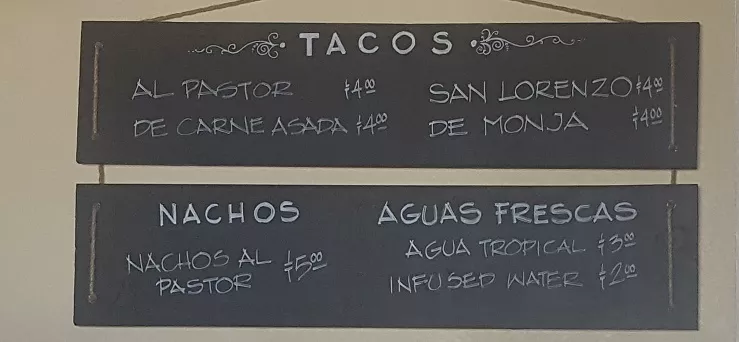 TACOS
AL PASTOR $4.00 SAN LORENZO $4.00
DE CARNE ASADA $4.00 DE MONJA $4.00
NACHOS
NACHOS AL PASTOR $5.00
AGUAS FRESCAS
AGUA TROPICAL $3.00
INFUSED WATER $2.00